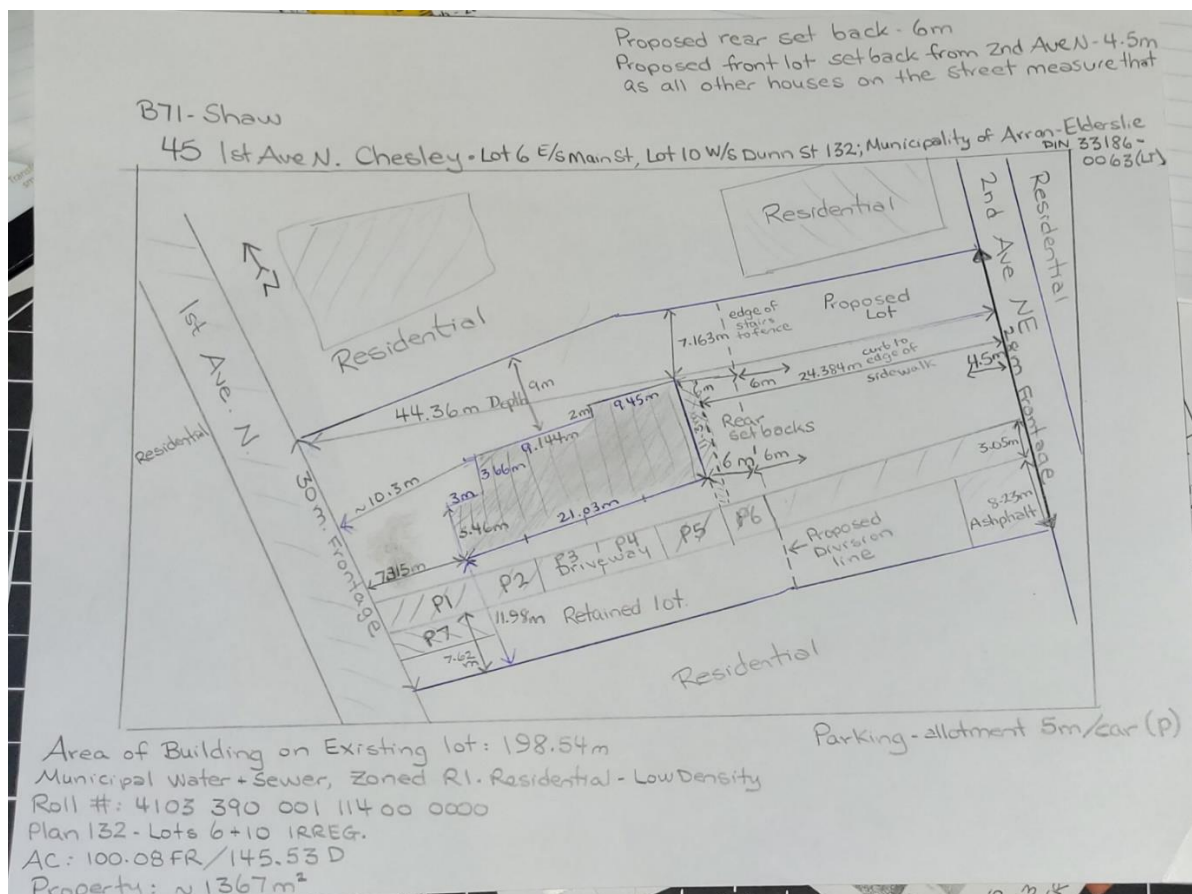 Proposed rear set back - 6m
Proposed front lot setback from 2nd Ave N - 4.5m
as all other houses on the street measure that
B71 - Shaw
45 1st Ave N. Chesley - Lot 6 E/s Main St, Lot 10 W/s Dunn St 132; Municipality of Arran-Elderslie
DIN 33186-
0063(Lt)
Residential
2nd Ave NE
Residential
N
1st Ave. N.
Residential
Residential
Proposed
Lot
edge of
stairs
to fence
7.163m
curb to
edge of
24.384m
sidewalk
4.5m
28m Frontage
9m
44.36m Depth
6m
6m
2m
9.45m
9.144m
3.66m
Rear
setbacks
6m
6m
~10.3m
3m
5.46m
21.03m
30m. Frontage
7.315m
3.05m
8.23m
Ashphalt
P1
P2
P3
P4
Driveway
P5
P6
Proposed
Division
line
P7
11.98m
Retained lot.
7.62
m
Residential
Parking - allotment 5m/car (P)
Area of Building on Existing lot: 198.54m
Municipal Water + Sewer, Zoned R1. Residential - Low Density
Roll #: 4103 390 001 11400 0000
Plan 132 - Lots 6 + 10 IRREG.
AC: 100.08 FR/145.53 D
Property: ~ 1367m²